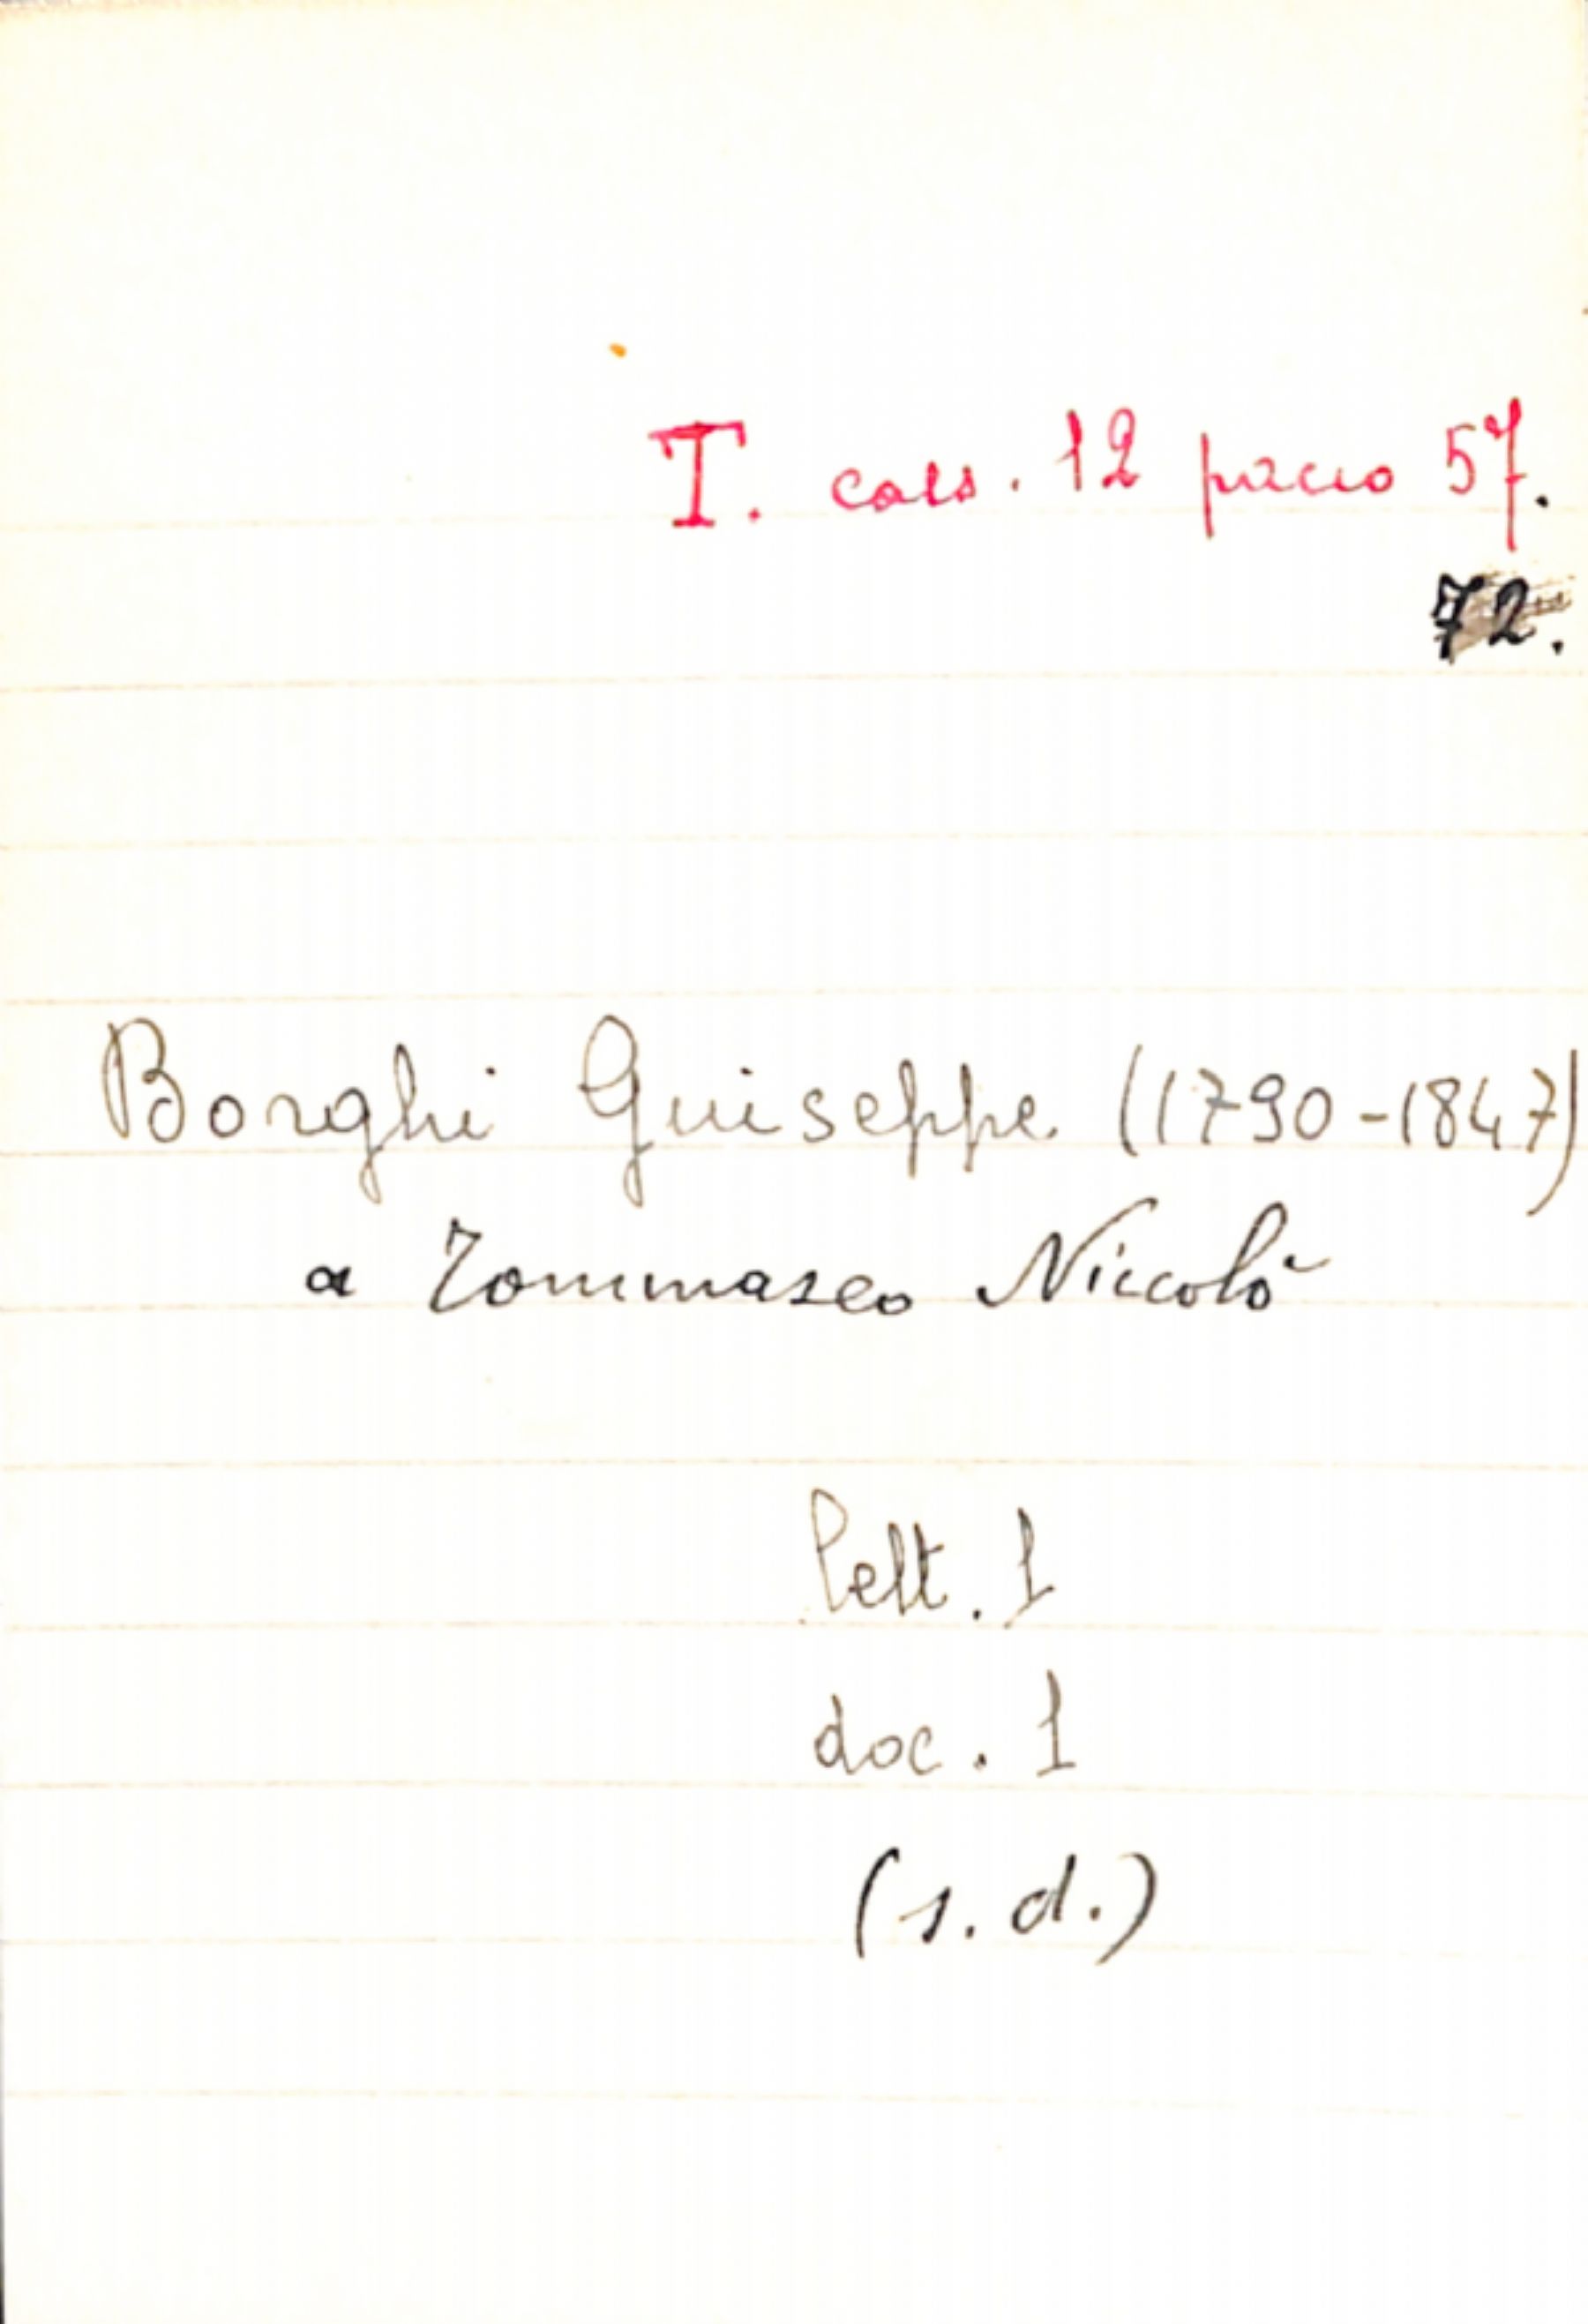 T. cass. 12 pacco 57.
72.
Borghi Giuseppe (1790-1847)
a Tommaseo Niccolò
lett. 1
doc. 1
(s.d.)